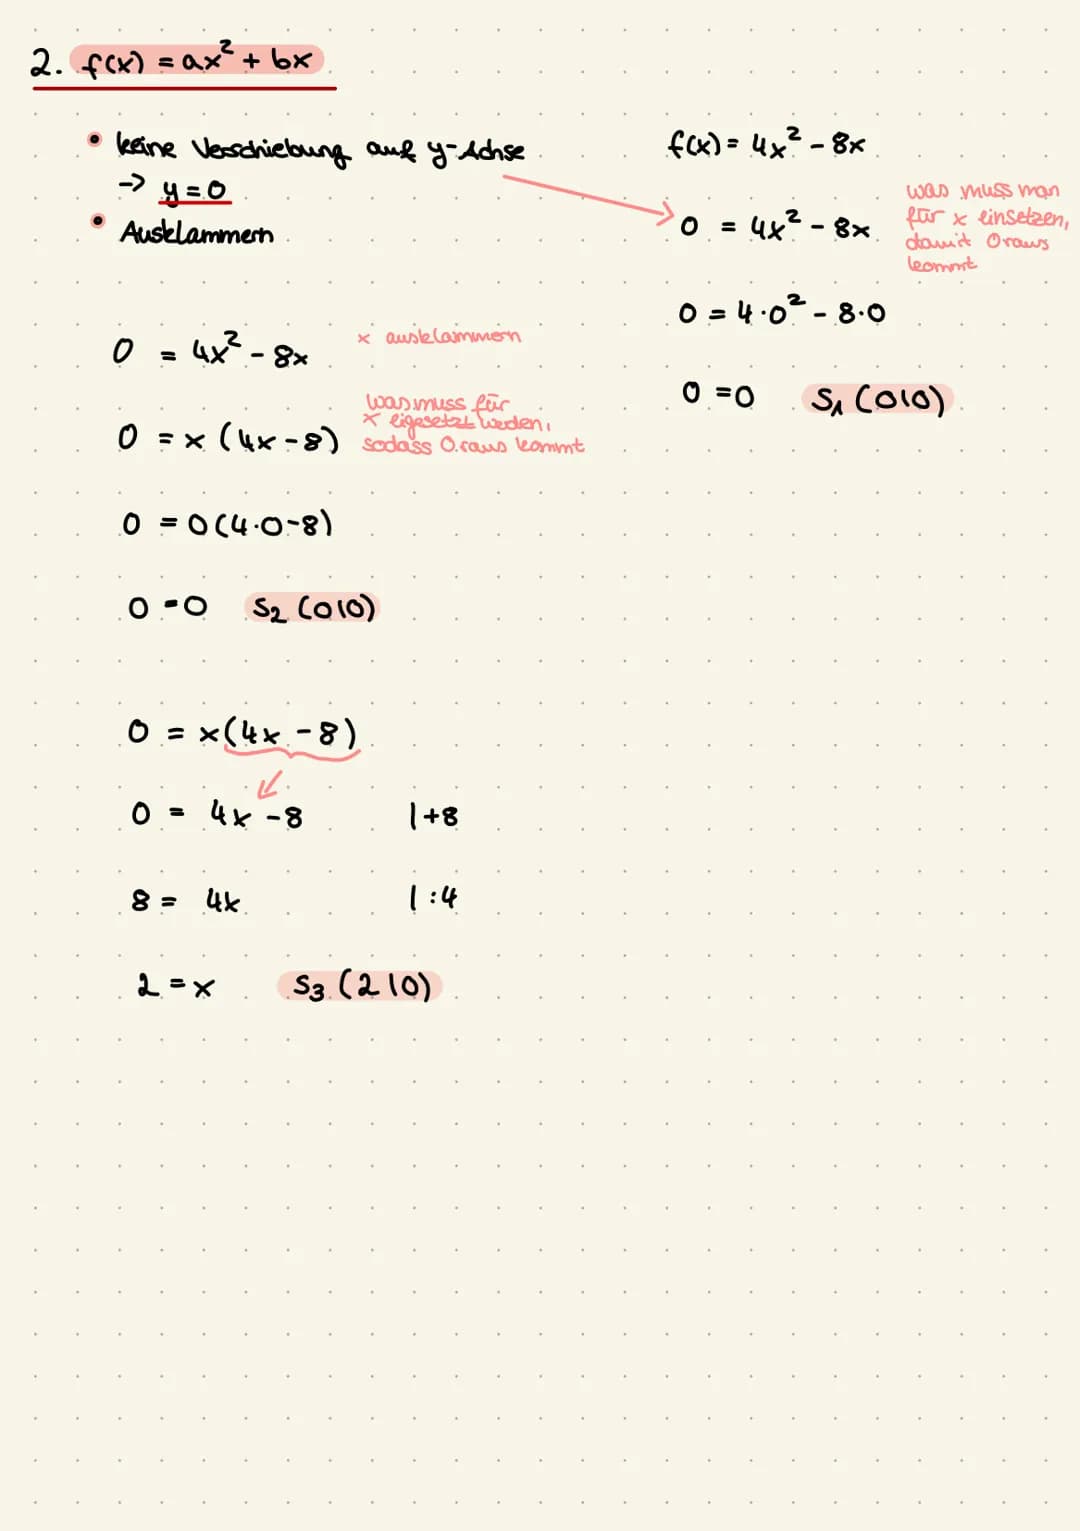 2. f(x) = ax² + bx
• keine Verschiebung auf y-Achse
-> y = 0
• Ausklammern
f(x) = 4x² - 8x
0 = 4x² - 8x
was muss man
für x einsetzen,
damit 0 raus
kommt
0 = 4·0² - 8·0
0 = 0 S₁ (0|0)
0 = 4x² - 8x x ausklammern
0 = x (4x - 8)
was muss für
x eigesetzt werden,
sodass 0 raus kommt
0 = 0 (4·0-8)
0 = 0 S₂ (0|0)
0 = x(4x - 8)
0 = 4x - 8 |+8
8 = 4x |:4
2 = x S₃ (2|0)